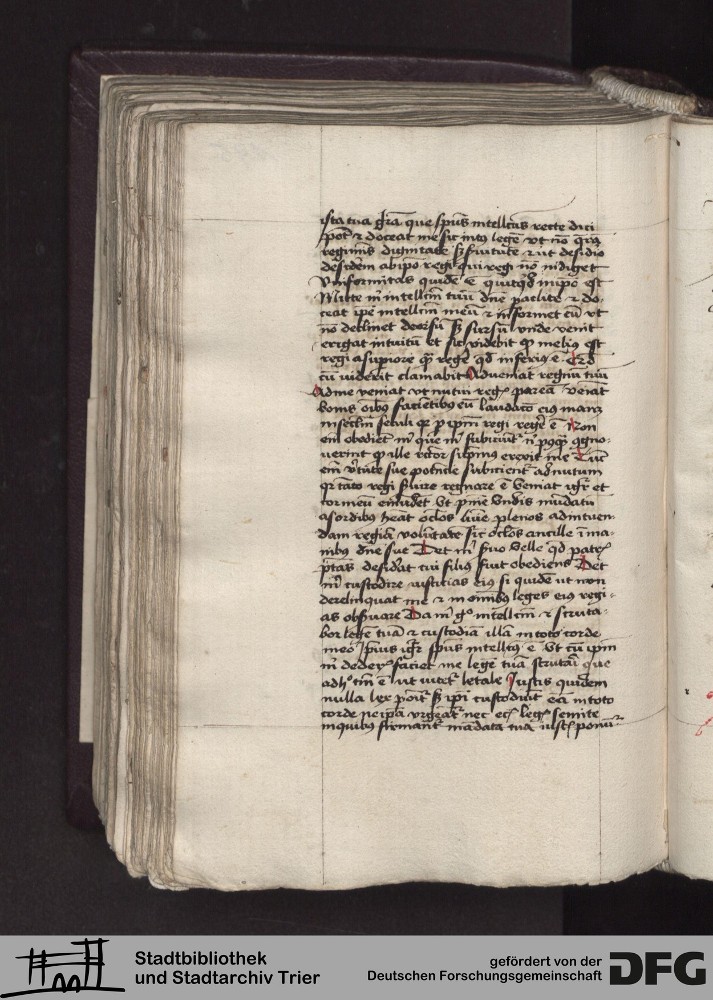 ista tua gra que spus intellcus recte dici
pot & doceat me sic intus lege vt no
regiminis dignitate s3 fruitute & ut desidio
desidem ab ipo regi qui regi no indiget
Vniformitas quide e quitqd in ipo est
Mitte m intellcm tuu dne paclite & do-
ceat ipe intellcm meu & informet eu vt
no declinet deorsu s3 sursu vnde venit
erigat intuitu et sic videbit q melius est
regi a supiore q3 rege qd inferius e
cu viderit clamabit Adueniat regnu tuu
Adme veniat vt nutui reg parea Veniat
bonis oibus facietibus eu laudaco eius manz
in seclm seculi qr p ipm regi rege e Non
em obediet m que m subiciut
uerint q ille rector supmus erexit me Tuc
em vtute sue potencie subicient ad nutum
qr tato regi fuire regnare e Veniat igr et
cor meu emudet Vt pme vndis mudatu
a sordibus heat oclos liue plenos ad intuen-
dam regia volutate sic oclos ancille i ma-
nibus dne sue Det m suo velle qd pater
ptas desidat cui filius fiut obediens Det
m custodire iusticias eius si quide ut non
derelinquat me & in omibus leges eius regi-
as obsuare Da m go intellcm & scruta-
bor lege tua & custodia illa in toto corde
meo Prius igr spus intellcus e Vt cu ipm
m dederis faciet me lege tua scrutai que
ad hoc tm e ut vitet letale Iustis quidem
nulla lex poit s3 ipi custodiut ea in toto
corde ne ipa vrgeat nec ei leg semite
in quibus firmant madata tua iust ponu
Stadtbibliothek
und Stadtarchiv Trier
gefördert von der
Deutschen Forschungsgemeinschaft
DFG